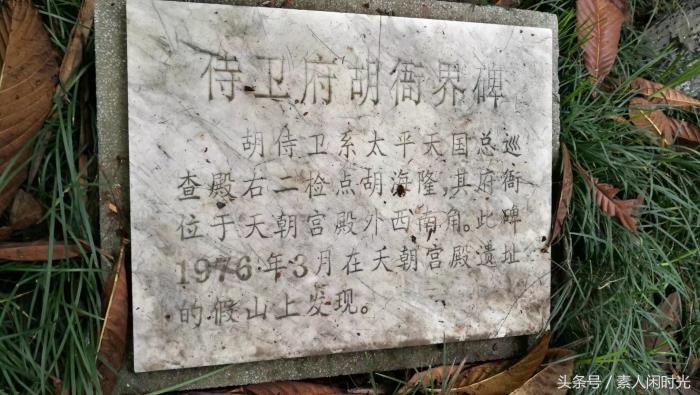 侍卫府胡衙界碑
胡侍卫系太平天国总巡
查殿右二检点胡海隆,其府衙
位于天朝宫殿外西南角。此碑
1976年3月在天朝宫殿遗址
的假山上发现。
头条号/素人闲时光